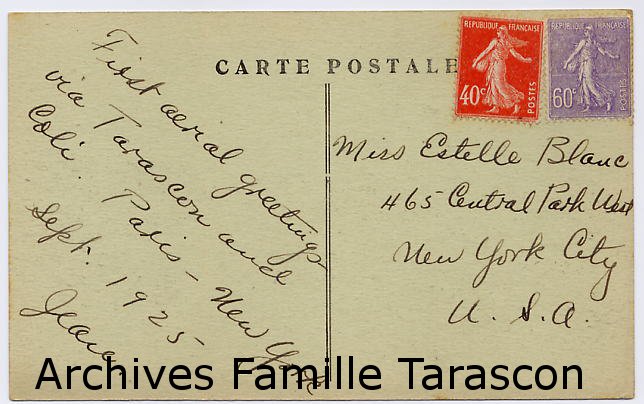 CARTE POSTALE
REPUBLIQUE FRANÇAISE
40c
POSTES
REPUBLIQUE FRANÇAISE
60c
POSTES
First aerial greetings
via Tarascon and
Coli. Paris - New York
Sept. 1925
Miss Estelle Blanc
465 Central Park West
New York City
U. S. A.
Archives Famille Tarascon